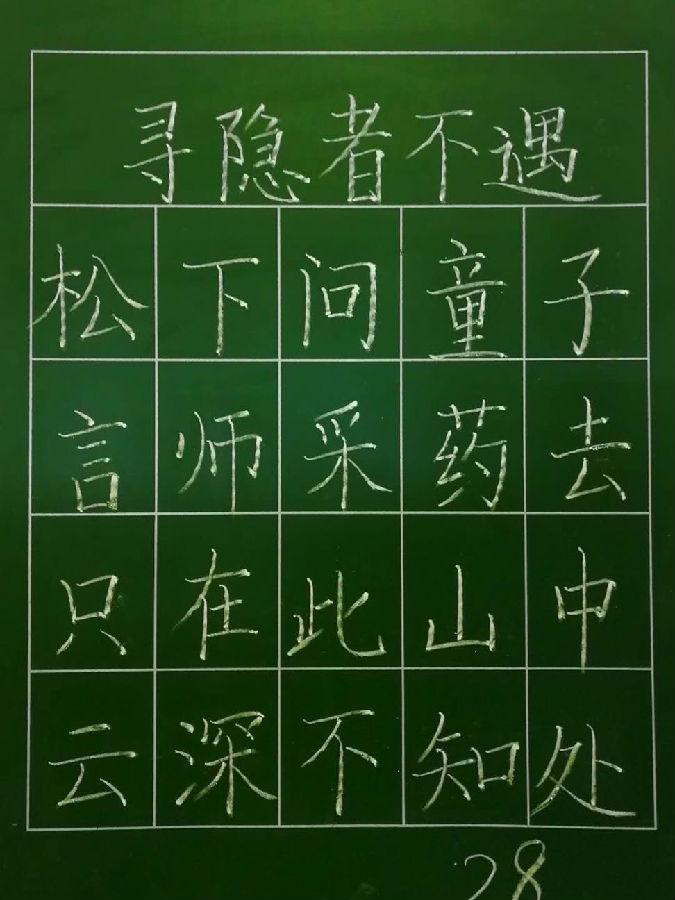 寻隐者不遇
松下问童子
言师采药去
只在此山中
云深不知处
28